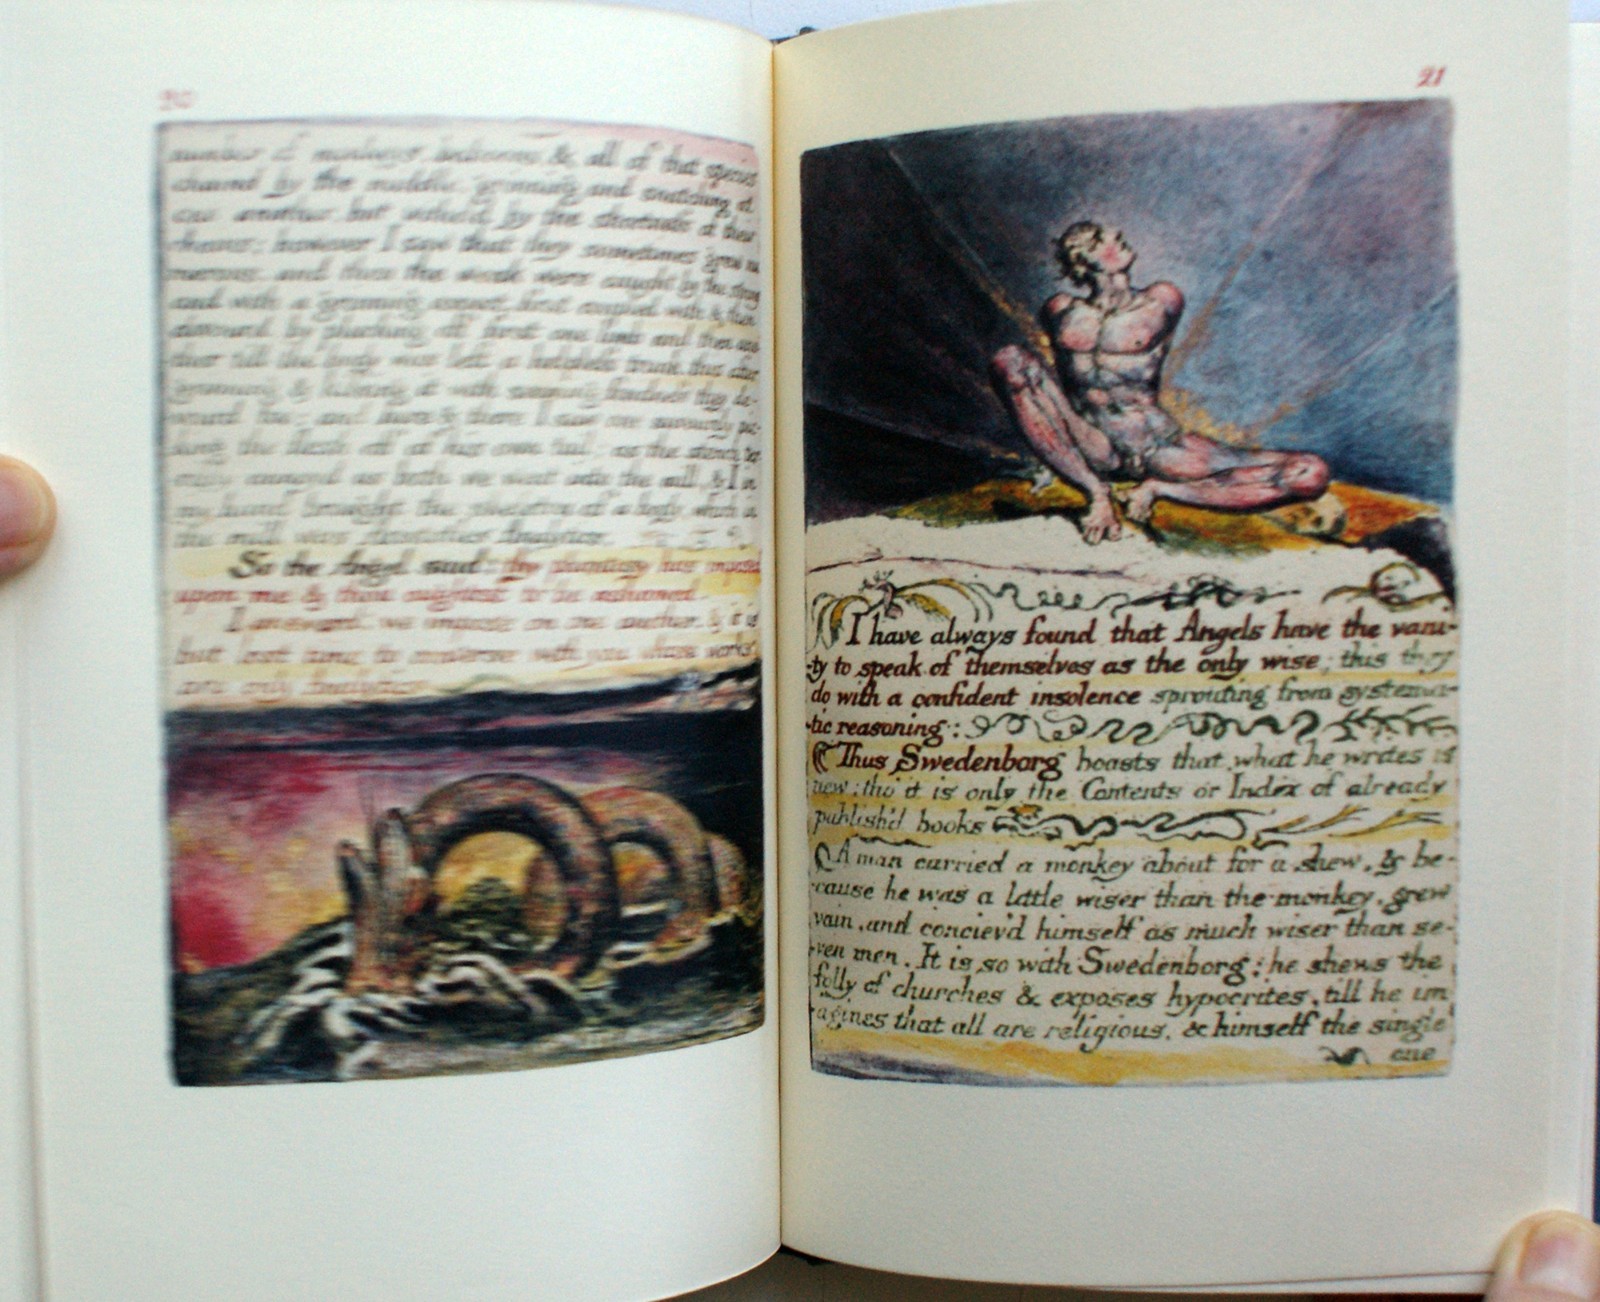 20
number of monkeys, baboons, & all of that species
chained by the middle, grinning and snatching at
one another, but witheld by the shortness of their
chains: however I saw that they sometimes grew nu
merous, and then the weak were caught by the strong
and with a grinning aspect, first coupled with & then
devourd, by plucking off first one limb and then ano
ther till the body was left a helpless trunk. this after
grinning & kissing it with seeming fondness they de-
vourd too; and here & there I saw one savourily pic-
king the flesh off of his own tail; as the stench ter
ribly annoyd us both we went into the mill, & I in
my hand brought the skeleton of a body, which in
the mill was Aristotles Analytics.
So the Angel said: thy phantasy has imposed
upon me & thou oughtest to be ashamed.
I answerd: we impose on one another, & it is
but lost time to converse with you whose works
are only Analytics
21
I have always found that Angels have the vani-
-ty to speak of themselves as the only wise; this they
do with a confident insolence sprouting from systema-
-tic reasoning:
Thus Swedenborg boasts that what he writes is
new; tho' it is only the Contents or Index of already
publish'd books
A man carried a monkey about for a shew, & be-
-cause he was a little wiser than the monkey, grew
vain, and conciev'd himself as much wiser than se-
-ven men. It is so with Swedenborg; he shews the
folly of churches & exposes hypocrites, till he im
-agines that all are religious, & himself the single
one